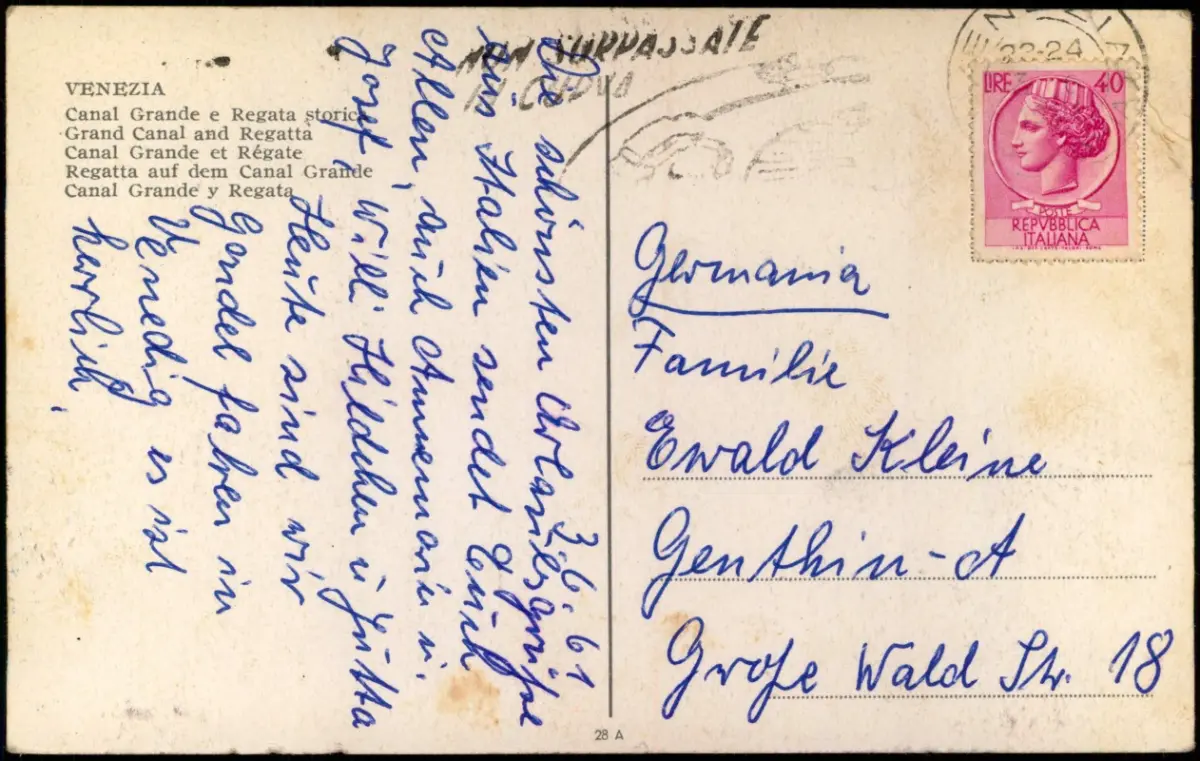 VENEZIA
Canal Grande e Regata storica
Grand Canal and Regatta
Canal Grande et Régate
Regatta auf dem Canal Grande
Canal Grande y Regata
NON SORPASSATE
IN CURVA
22-24
LIRE 40
POSTE
REPVBBLICA
ITALIANA
3.6.61
Die schönsten Urlaubsgrüße
aus Italien sendet Euch
Allen, auch Annemarie u.
Josef, Willi Hildchen u Jutta
Heute sind wir
Gondel fahren in
Venedig es ist
herrlich.
Germania
Familie
Ewald Kleine
Genthin-A
Große Wald Str. 18
28 A